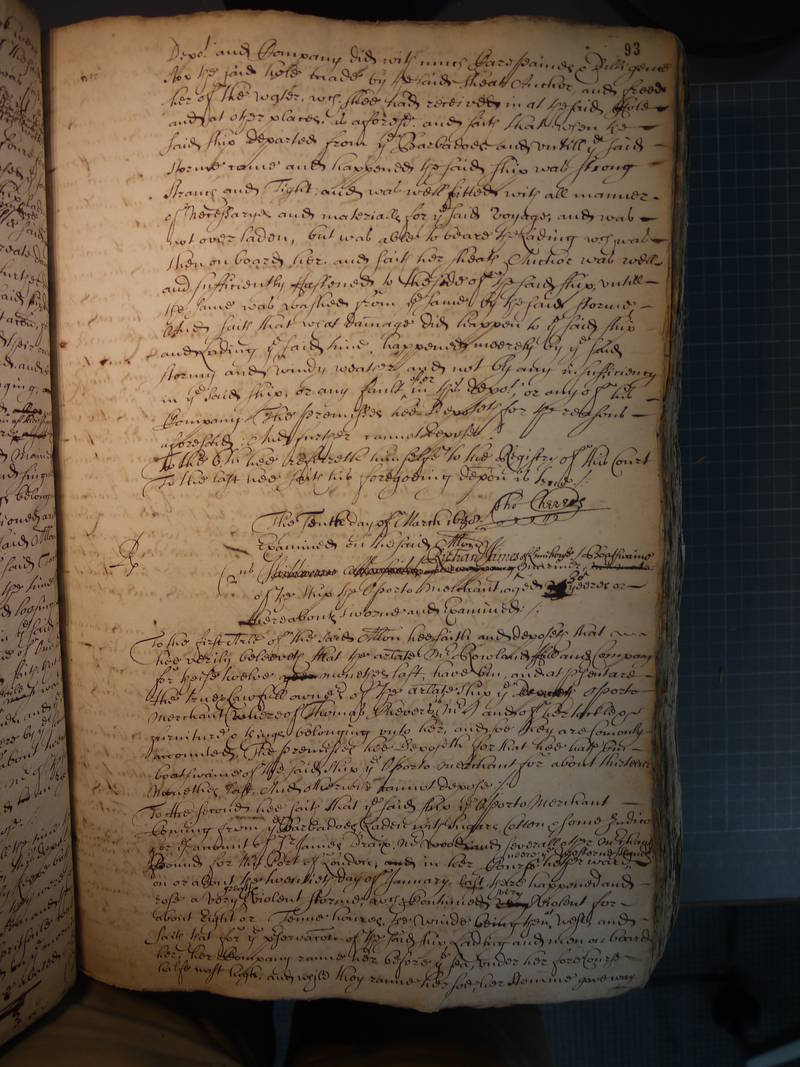 93
Depot and Company did with much Care paines & Dilligence
stop the said hole made by the said sheate Anchor, and freed
her of the water, wch shee had received in at the said hole
and at other places, as aforesd. and saith that when the
said ship departed from ye Barbadoes and untill ye said
storme came and happened the said ship was strong
stanch and Tight, and was well fitted with all manner
of Necessaryes and materialls for ye said voyage, and was
not over laden, but was able to beare the lading wch was
then on board her. and saith her sheate Anchor was well
and sufficiently fastened to the side of the said ship, untill
the same was washed from the same by the said storme,
And saith that what damage did happen to ye said ship
and lading ye said time, happened meerely by ye said
stormy and windy weather, and not by any insufficiency
in ye said ship, or any fault in this depot, or any of his
Company The premisses hee deposeth for the reasons
aforesaid. And further cannot depose
To the 6th hee referreth himselfe to the Registry of this Court
To the last hee saith his foregoeing depon is true
Tho: Cheevers
The Tenth day of March
Examined on the said Allon
2us Richard of Boatswaine
of the ship the Oporto Merchant, aged yeares or
thereabouts sworne and Examined
To the first Arle of the said Allon hee saith and deposeth that
hee verily beleeveth that the arlate Mr Rowland and Company
for theise twelve monethes last, have bin, and at present are
the true Lawfull owners of the arlate ship ye Oporto
Merchant (whereof Thomas Cheevers Mr) and of her tackle &
furniture & things belonging unto her, and soe they are comonly
accounted, The premisses hee deposeth for that hee hath bin
boatswaine of the said ship ye Oporto Merchant for about thirteene
Monethes last, And otherwise cannot depose
To the second hee saith that ye said ship ye Oporto Merchant
Coming from ye Barbadoes Laden with sugars, Cotton & some Indico
for Accompt of Sr James Drax, Mr Wood and severall other Merchants
Bound for this Port of London, in her Course hither
on or about the twentieth day of January last there happened and
rose a very violent storme, wch Continued very violent for
about Eight or Tenne houres, the winde being then west, and
saith that for ye preservacon of the said ship Lading and men on board
her, her Company ranne her before ye sea, under her fore Course
halfe mast high, and while they ranne her soe, her stemme gave way